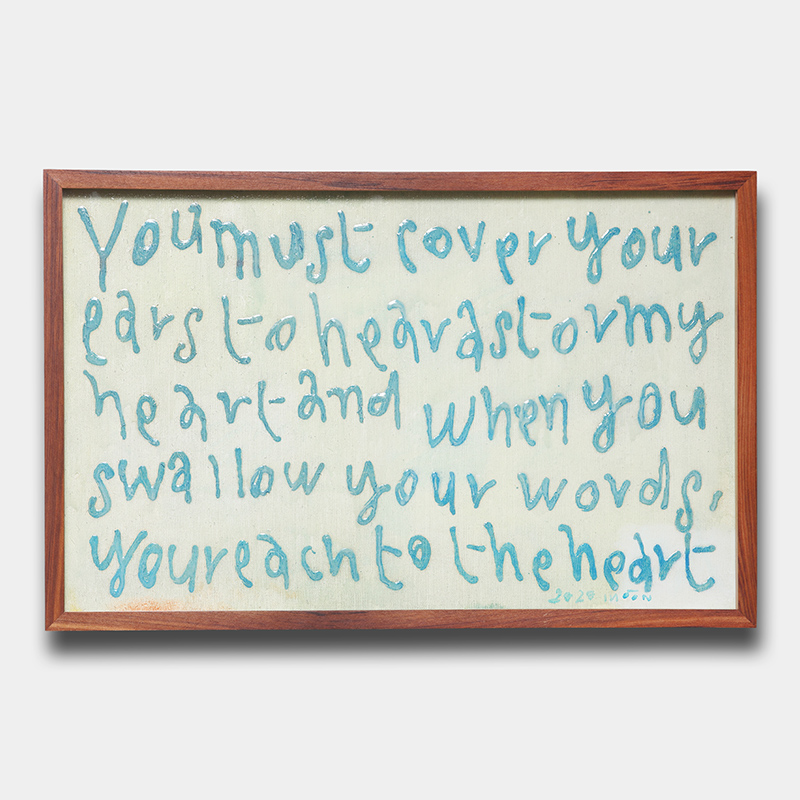 You must cover your
ears to hear a stormy
heart and when you
swallow your words,
you reach to the heart
2020 MOON